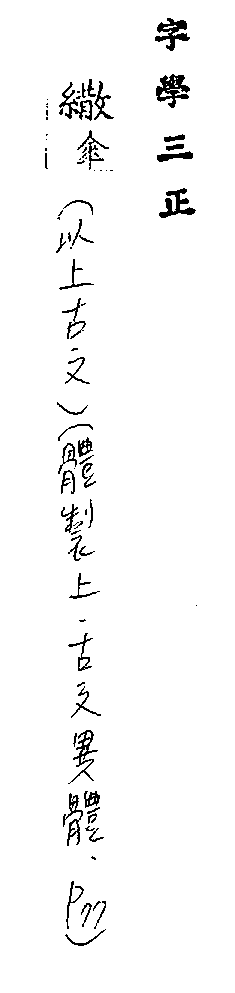 字學三正
繖傘（以上古文）（體製上．古文異體、P77）